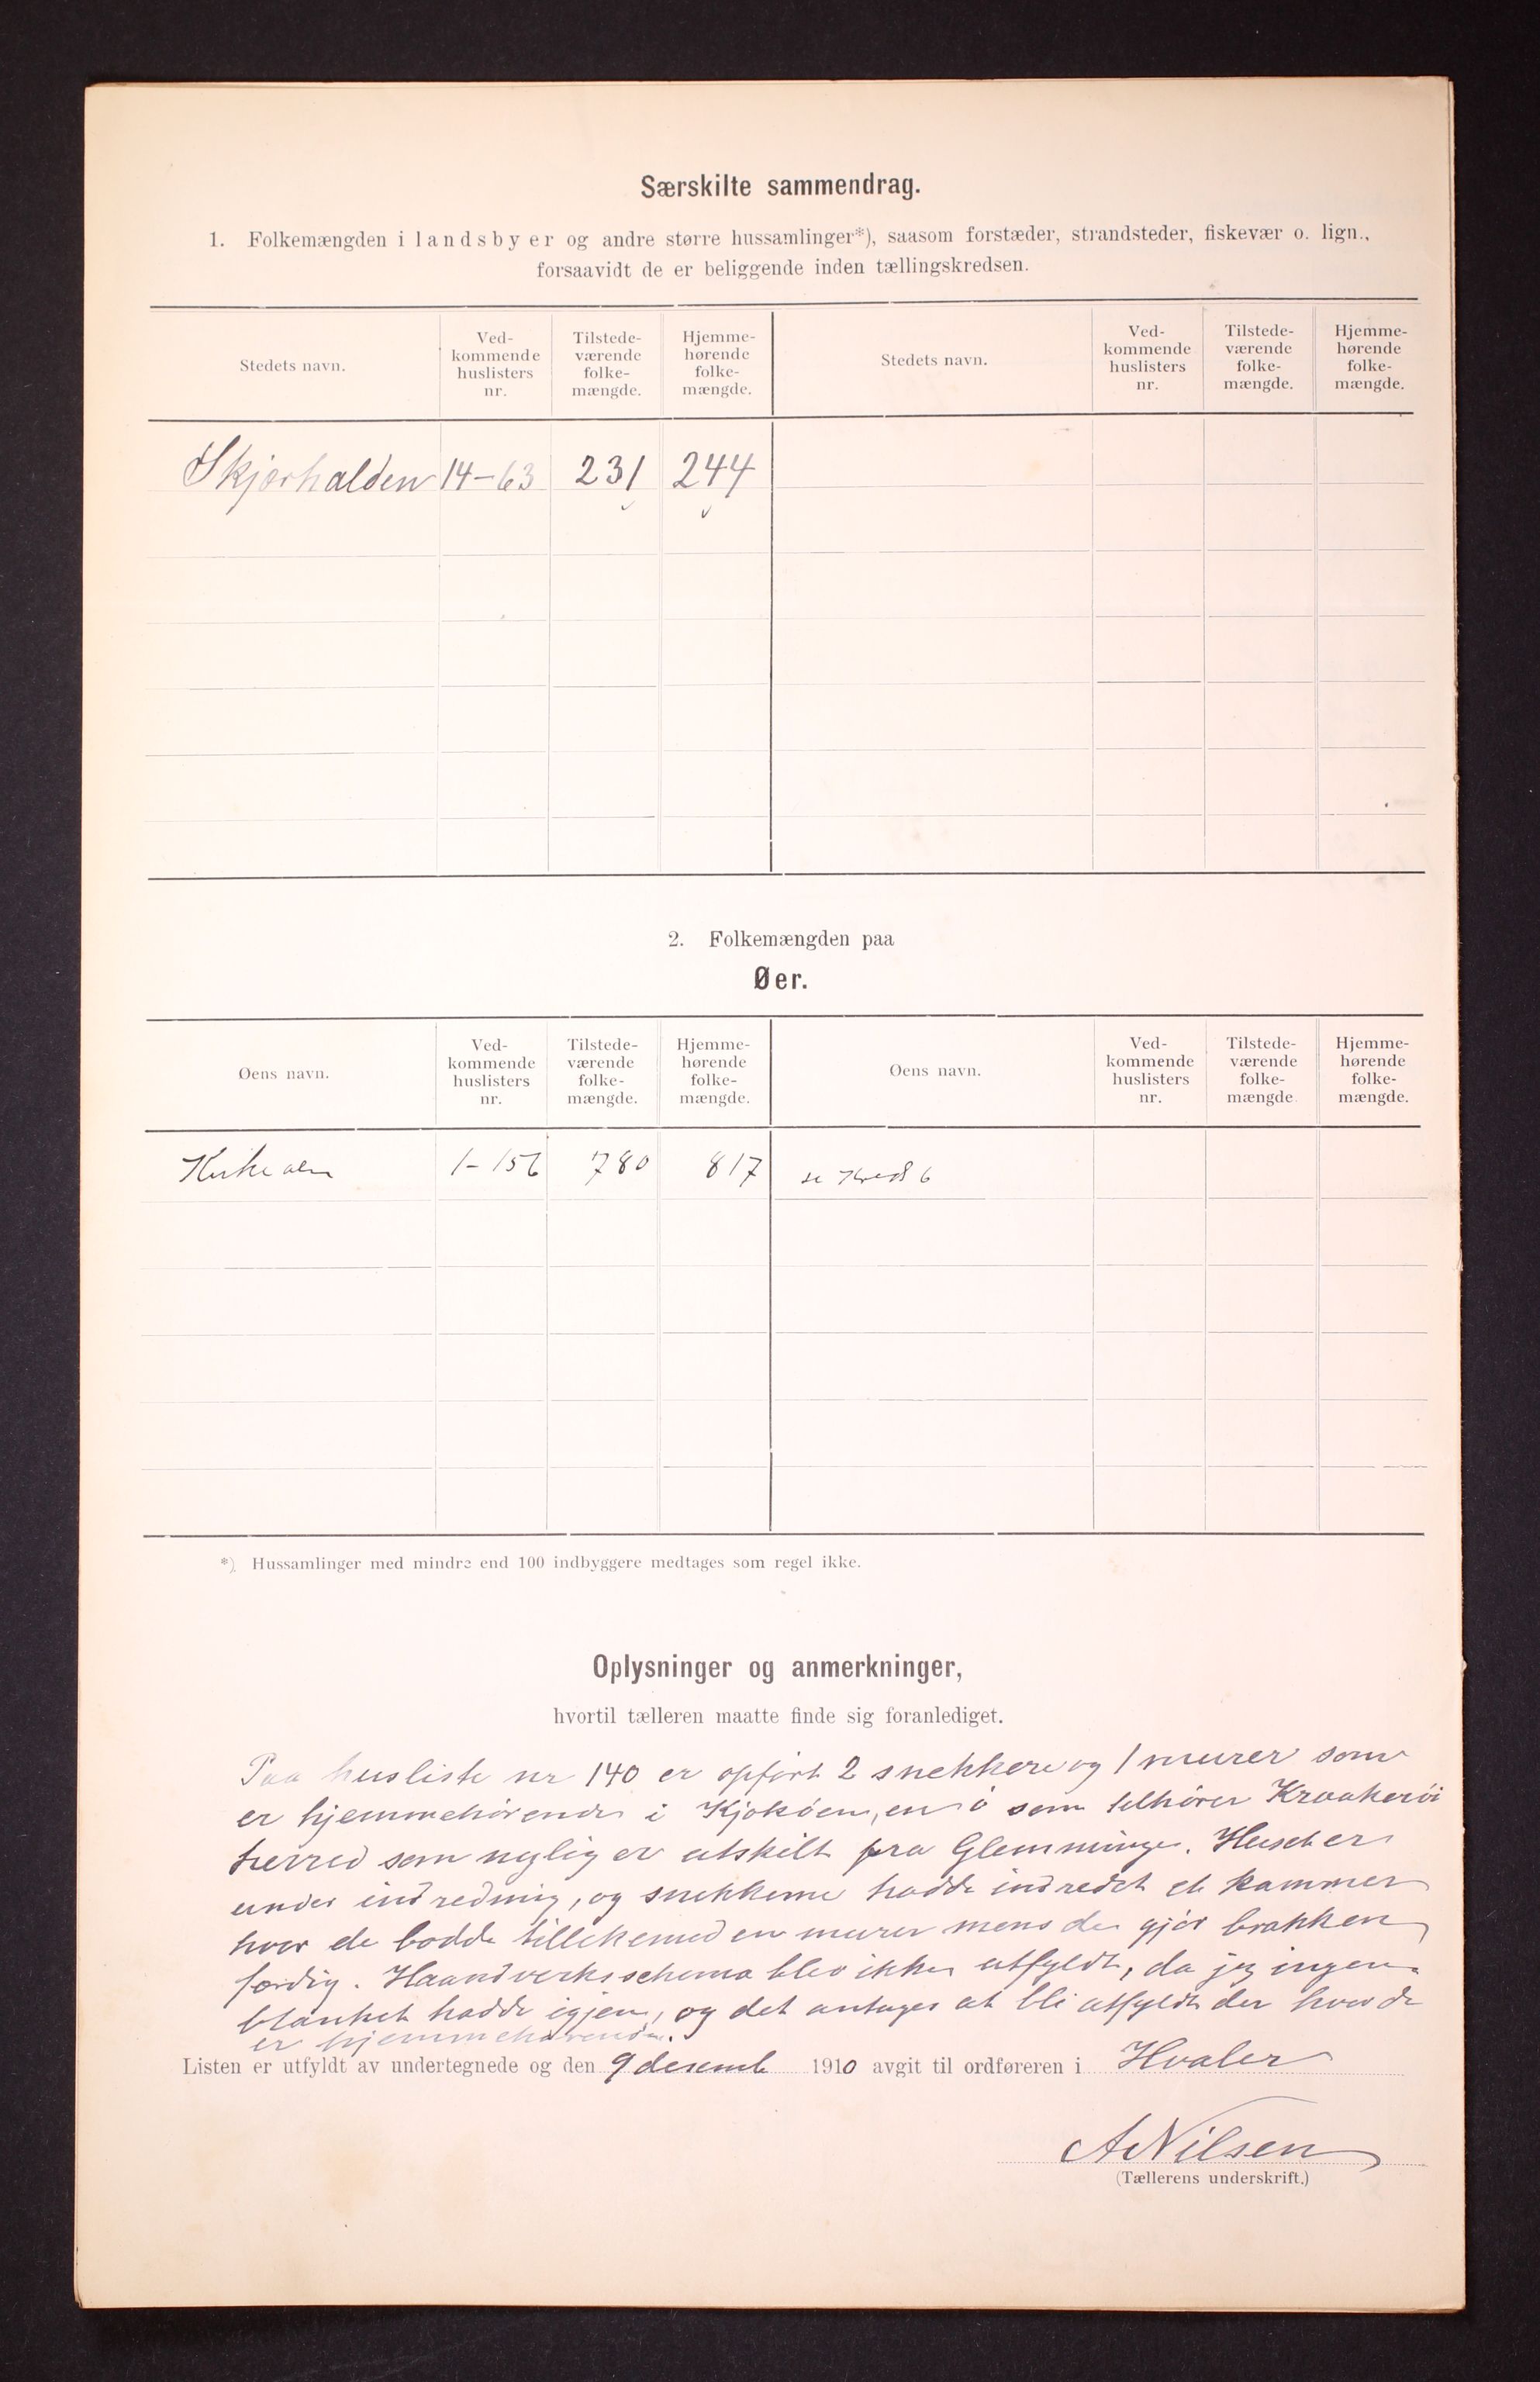 Særskilte sammendrag.
1. Folkemængden i landsbyer og andre større hussamlinger*), saasom forstæder, strandsteder, fiskevær o. lign.,
forsaavidt de er beliggende inden tællingskredsen.
Stedets navn. Ved-kommende huslisters nr. Tilstede-værende folke-mængde. Hjemme-hørende folke-mængde. Stedets navn. Ved-kommende huslisters nr. Tilstede-værende folke-mængde. Hjemme-hørende folke-mængde.
Skjærhalden 14-63 231 244
2. Folkemængden paa
Øer.
Øens navn. Ved-kommende huslisters nr. Tilstede-værende folke-mængde. Hjemme-hørende folke-mængde. Øens navn. Ved-kommende huslisters nr. Tilstede-værende folke-mængde Hjemme-hørende folke-mængde.
Kirkeøen 1-156 780 817 se Kreds 6
*) Hussamlinger med mindre end 100 indbyggere medtages som regel ikke.
Oplysninger og anmerkninger,
hvortil tælleren maatte finde sig foranlediget.
Paa husliste nr 140 er opført 2 snekkere og 1 murer som
er hjemmehørende i Kjøkøen, en ø som tilhører Kraakerøi
herred som nylig er utskilt fra Glemminge. Huset er
under indredning, og snekkerne hadde indredet et kammer
hvor de bodde tillikemed en murer mens de gjør brakken
færdig. Haandverksschema blev ikke utfyldt, da jeg ingen
blanket hadde igjen, og det antages at bli utfyldt der hvor de
er hjemmehørende.
Listen er utfyldt av undertegnede og den 9 desemb 1910 avgit til ordføreren i Hvaler
A Nilsen
(Tællerens underskrift.)